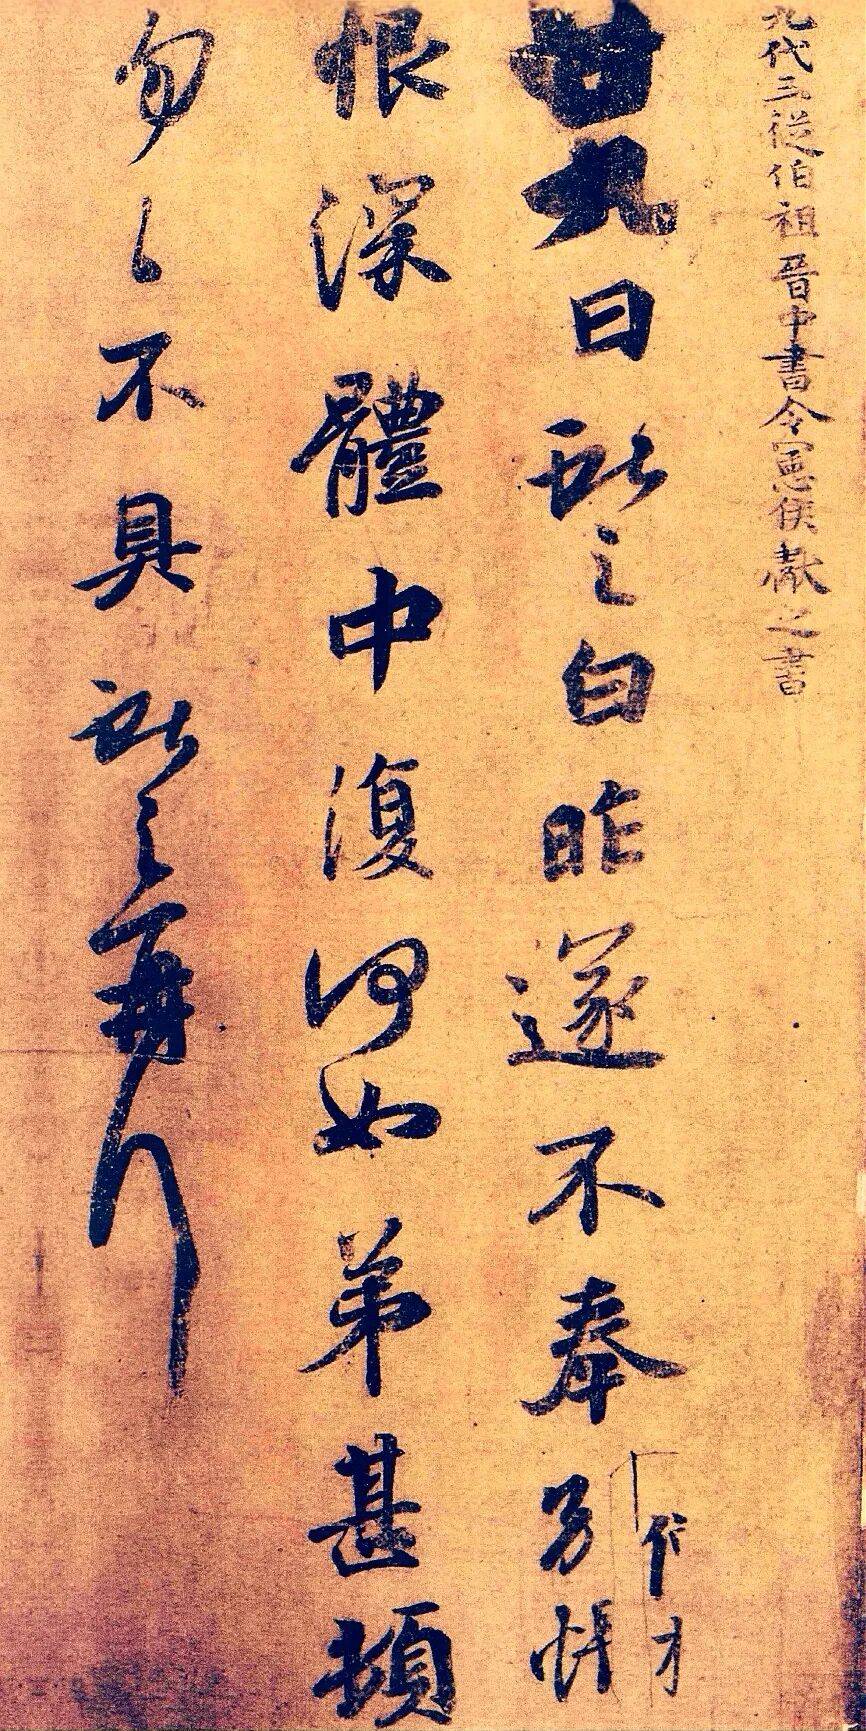 九代三從伯祖晉中書令憲侯獻之書
廿九日獻之白昨遂不奉別悵
恨深體中復何如弟甚頓
匆々不具獻之再拜